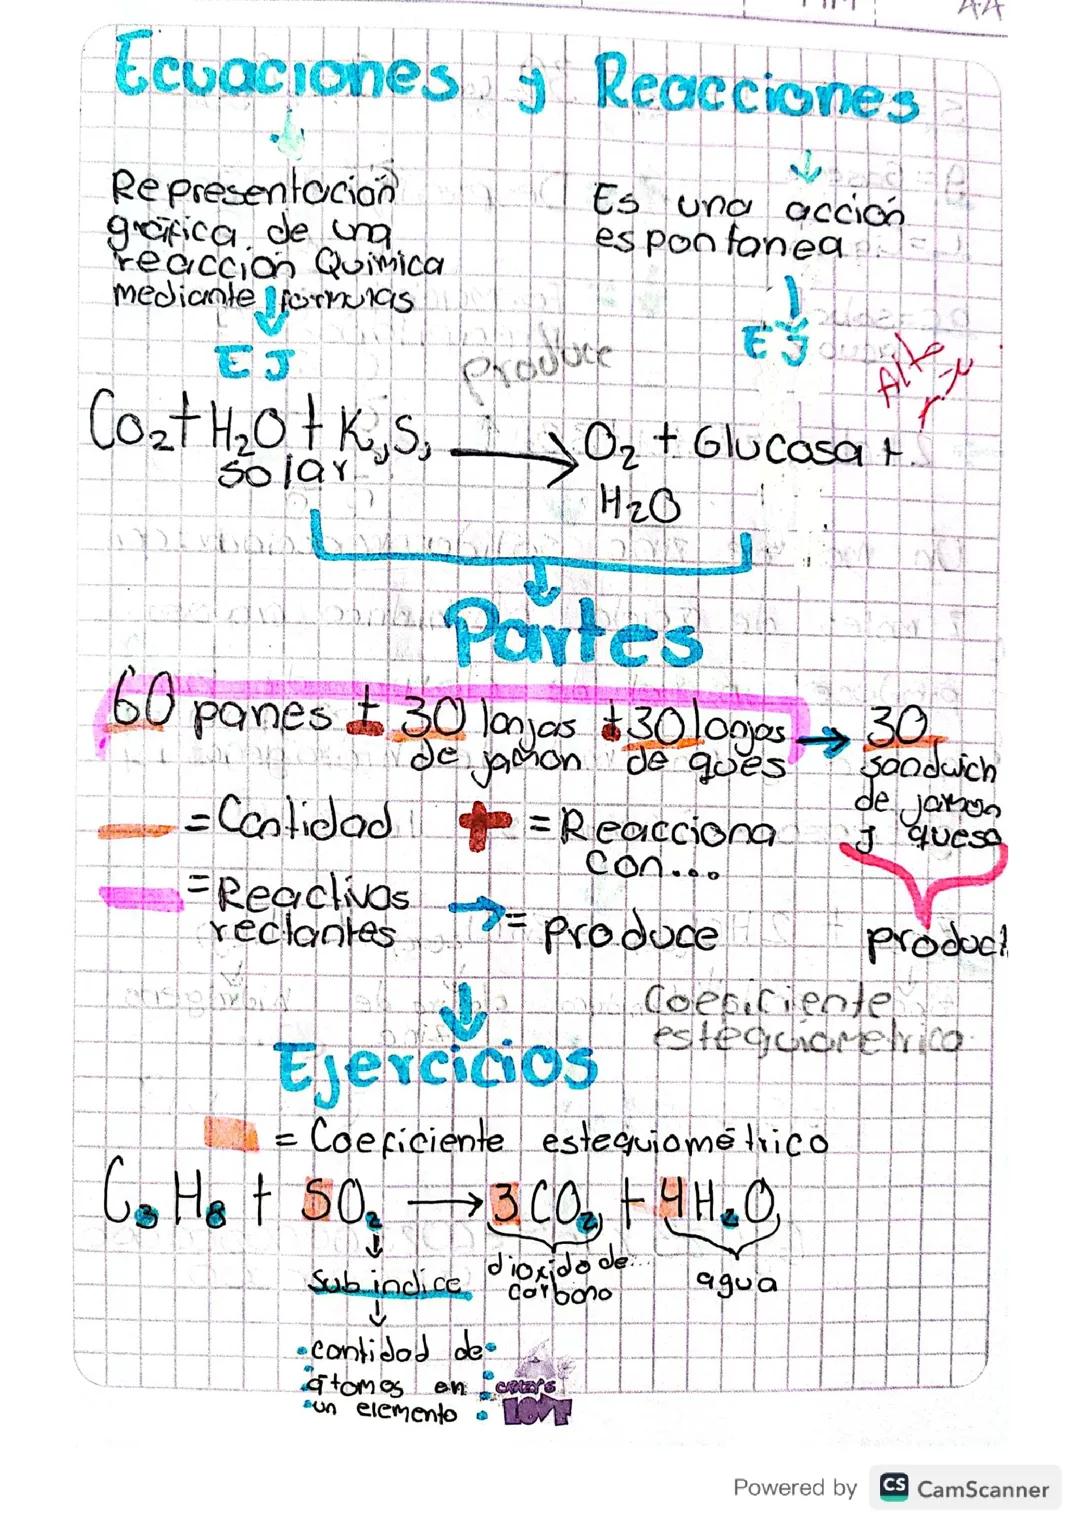 Ecuaciones y Reacciones
Representación
gráfica de una
reacción Química
mediante formulas
EJ
Es una acción
espontanea
EJ
produce
Co₂ + H₂O + K,S,
solar
O₂ + Glucosa +
H₂O
Partes
60 panes + 30 lonjas + 30 lonjas → 30
de jamon de ques sandwich
de jamon
y queso
= Cantidad + = Reacciona
con...
= Reactivos → = produce
rectantes
product
Coeficiente
estequiometrico
Ejercicios
= Coeficiente estequiométrico
C₃H₈ + 5O₂ → 3CO₂ + 4H₂O
sub indice
dioxido de
carbono
agua
cantidad de
átomos en
un elemento
LOVE
Powered by CS CamScanner